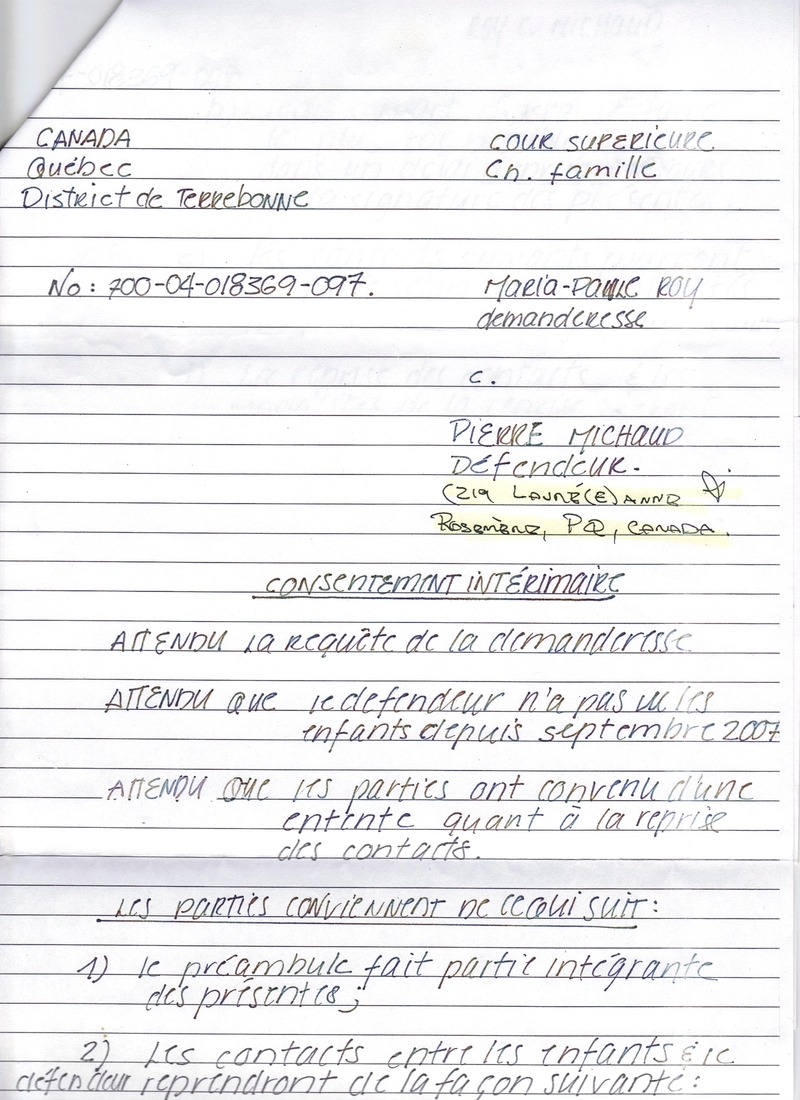 CANADA
Québec
District de Terrebonne
COUR SUPERIEURE
Ch. famille
No: 700-04-018369-097.
Maria-Paule ROY
demanderesse
c.
PIERRE MICHAUD
Défendeur.
(219 LAURÉ(E) ANNE
ROSEMÈRE, PQ, CANADA.
CONSENTEMENT INTÉRIMAIRE
ATTENDU la requête de la demanderesse
ATTENDU que le defendeur n'a pas vu les
enfants depuis septembre 2007
ATTENDU que les parties ont convenu d'une
entente quant à la reprise
des contacts.
LES PARTIES CONVIENNENT DE CE QUI SUIT:
1) le préambule fait partie intégrante
des présentes;
2) Les contacts entre les enfants & le
défendeur reprendront de la façon suivante: